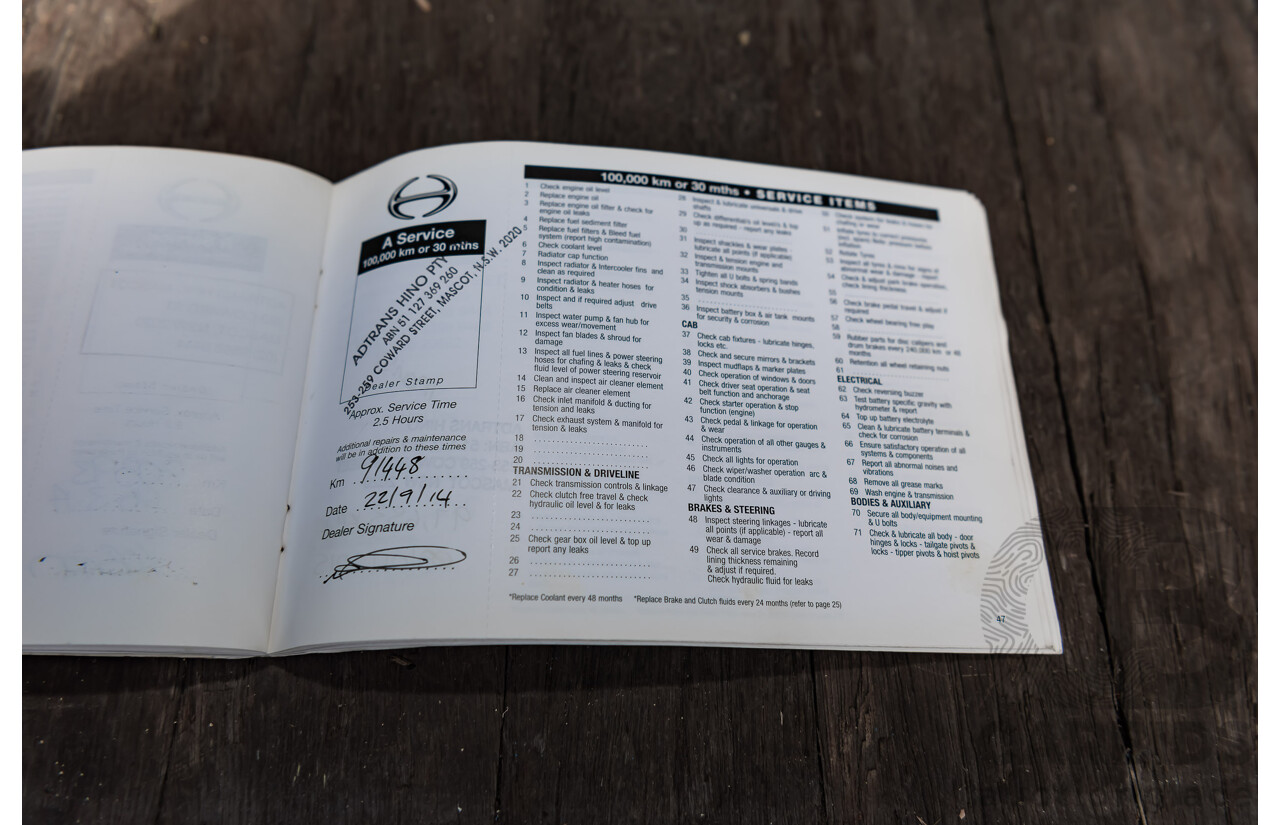 A Service
100,000 km or 30 mths
ADTRANS HINO PTY
ABN 51 127 369 260
253-259 COWARD STREET, MASCOT, N.S.W. 2020
Dealer Stamp
Approx. Service Time
2.5 Hours
Additional repairs & maintenance
will be in addition to these times
Km 91448
Date 22/9/14
Dealer Signature
100,000 km or 30 mths • SERVICE ITEMS
1 Check engine oil level
2 Replace engine oil
3 Replace engine oil filter & check for
engine oil leaks
4 Replace fuel sediment filter
5 Replace fuel filters & Bleed fuel
system (report high contamination)
6 Check coolant level
7 Radiator cap function
8 Inspect radiator & Intercooler fins and
clean as required
9 Inspect radiator & heater hoses for
condition & leaks
10 Inspect and if required adjust drive
belts
11 Inspect water pump & fan hub for
excess wear/movement
12 Inspect fan blades & shroud for
damage
13 Inspect all fuel lines & power steering
hoses for chafing & leaks & check
fluid level of power steering reservoir
14 Clean and inspect air cleaner element
15 Replace air cleaner element
16 Check inlet manifold & ducting for
tension and leaks
17 Check exhaust system & manifold for
tension & leaks
18
19
20
TRANSMISSION & DRIVELINE
21 Check transmission controls & linkage
22 Check clutch free travel & check
hydraulic oil level & for leaks
23
24
25 Check gear box oil level & top up
report any leaks
26
27
28 Inspect & lubricate universals & drive
shafts
29 Check differential/s oil level/s & top
up as required - report any leaks
30
31 Inspect shackles & wear plates -
lubricate all points (if applicable)
32 Inspect & tension engine and
transmission mounts
33 Tighten all U bolts & spring bands
34 Inspect shock absorbers & bushes
tension mounts
35
36 Inspect battery box & air tank mounts
for security & corrosion
CAB
37 Check cab fixtures - lubricate hinges,
locks etc.
38 Check and secure mirrors & brackets
39 Inspect mudflaps & marker plates
40 Check operation of windows & doors
41 Check driver seat operation & seat
belt function and anchorage
42 Check starter operation & stop
function (engine)
43 Check pedal & linkage for operation
& wear
44 Check operation of all other gauges &
instruments
45 Check all lights for operation
46 Check wiper/washer operation arc &
blade condition
47 Check clearance & auxiliary or driving
lights
BRAKES & STEERING
48 Inspect steering linkages - lubricate
all points (if applicable) - report all
wear & damage
49 Check all service brakes. Record
lining thickness remaining
& adjust if required.
Check hydraulic fluid for leaks
52 Rotate Tyres
53 Inspect all tyres & rims for signs of
abnormal wear & damage - report
54 Check & adjust park brake operation,
check lining thickness
55
56 Check brake pedal travel & adjust if
required
57 Check wheel bearing free play
58
59 Rubber parts for disc calipers and
drum brakes every 240,000 km or 48
months
60 Retention all wheel retaining nuts
61
ELECTRICAL
62 Check reversing buzzer
63 Test battery specific gravity with
hydrometer & report
64 Top up battery electrolyte
65 Clean & lubricate battery terminals &
check for corrosion
66 Ensure satisfactory operation of all
systems & components
67 Report all abnormal noises and
vibrations
68 Remove all grease marks
69 Wash engine & transmission
BODIES & AUXILIARY
70 Secure all body/equipment mounting
& U bolts
71 Check & lubricate all body - door
hinges & locks - tailgate pivots &
locks - tipper pivots & hoist pivots
*Replace Coolant every 48 months *Replace Brake and Clutch fluids every 24 months (refer to page 25)
47